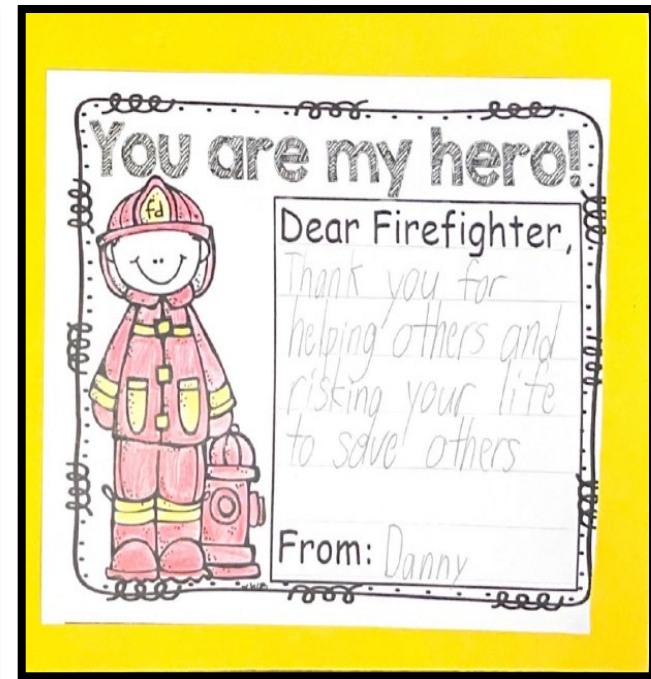 You are my hero!
fd
Dear Firefighter,
Thank you for
helping others and
risking your life
to save others
From: Danny